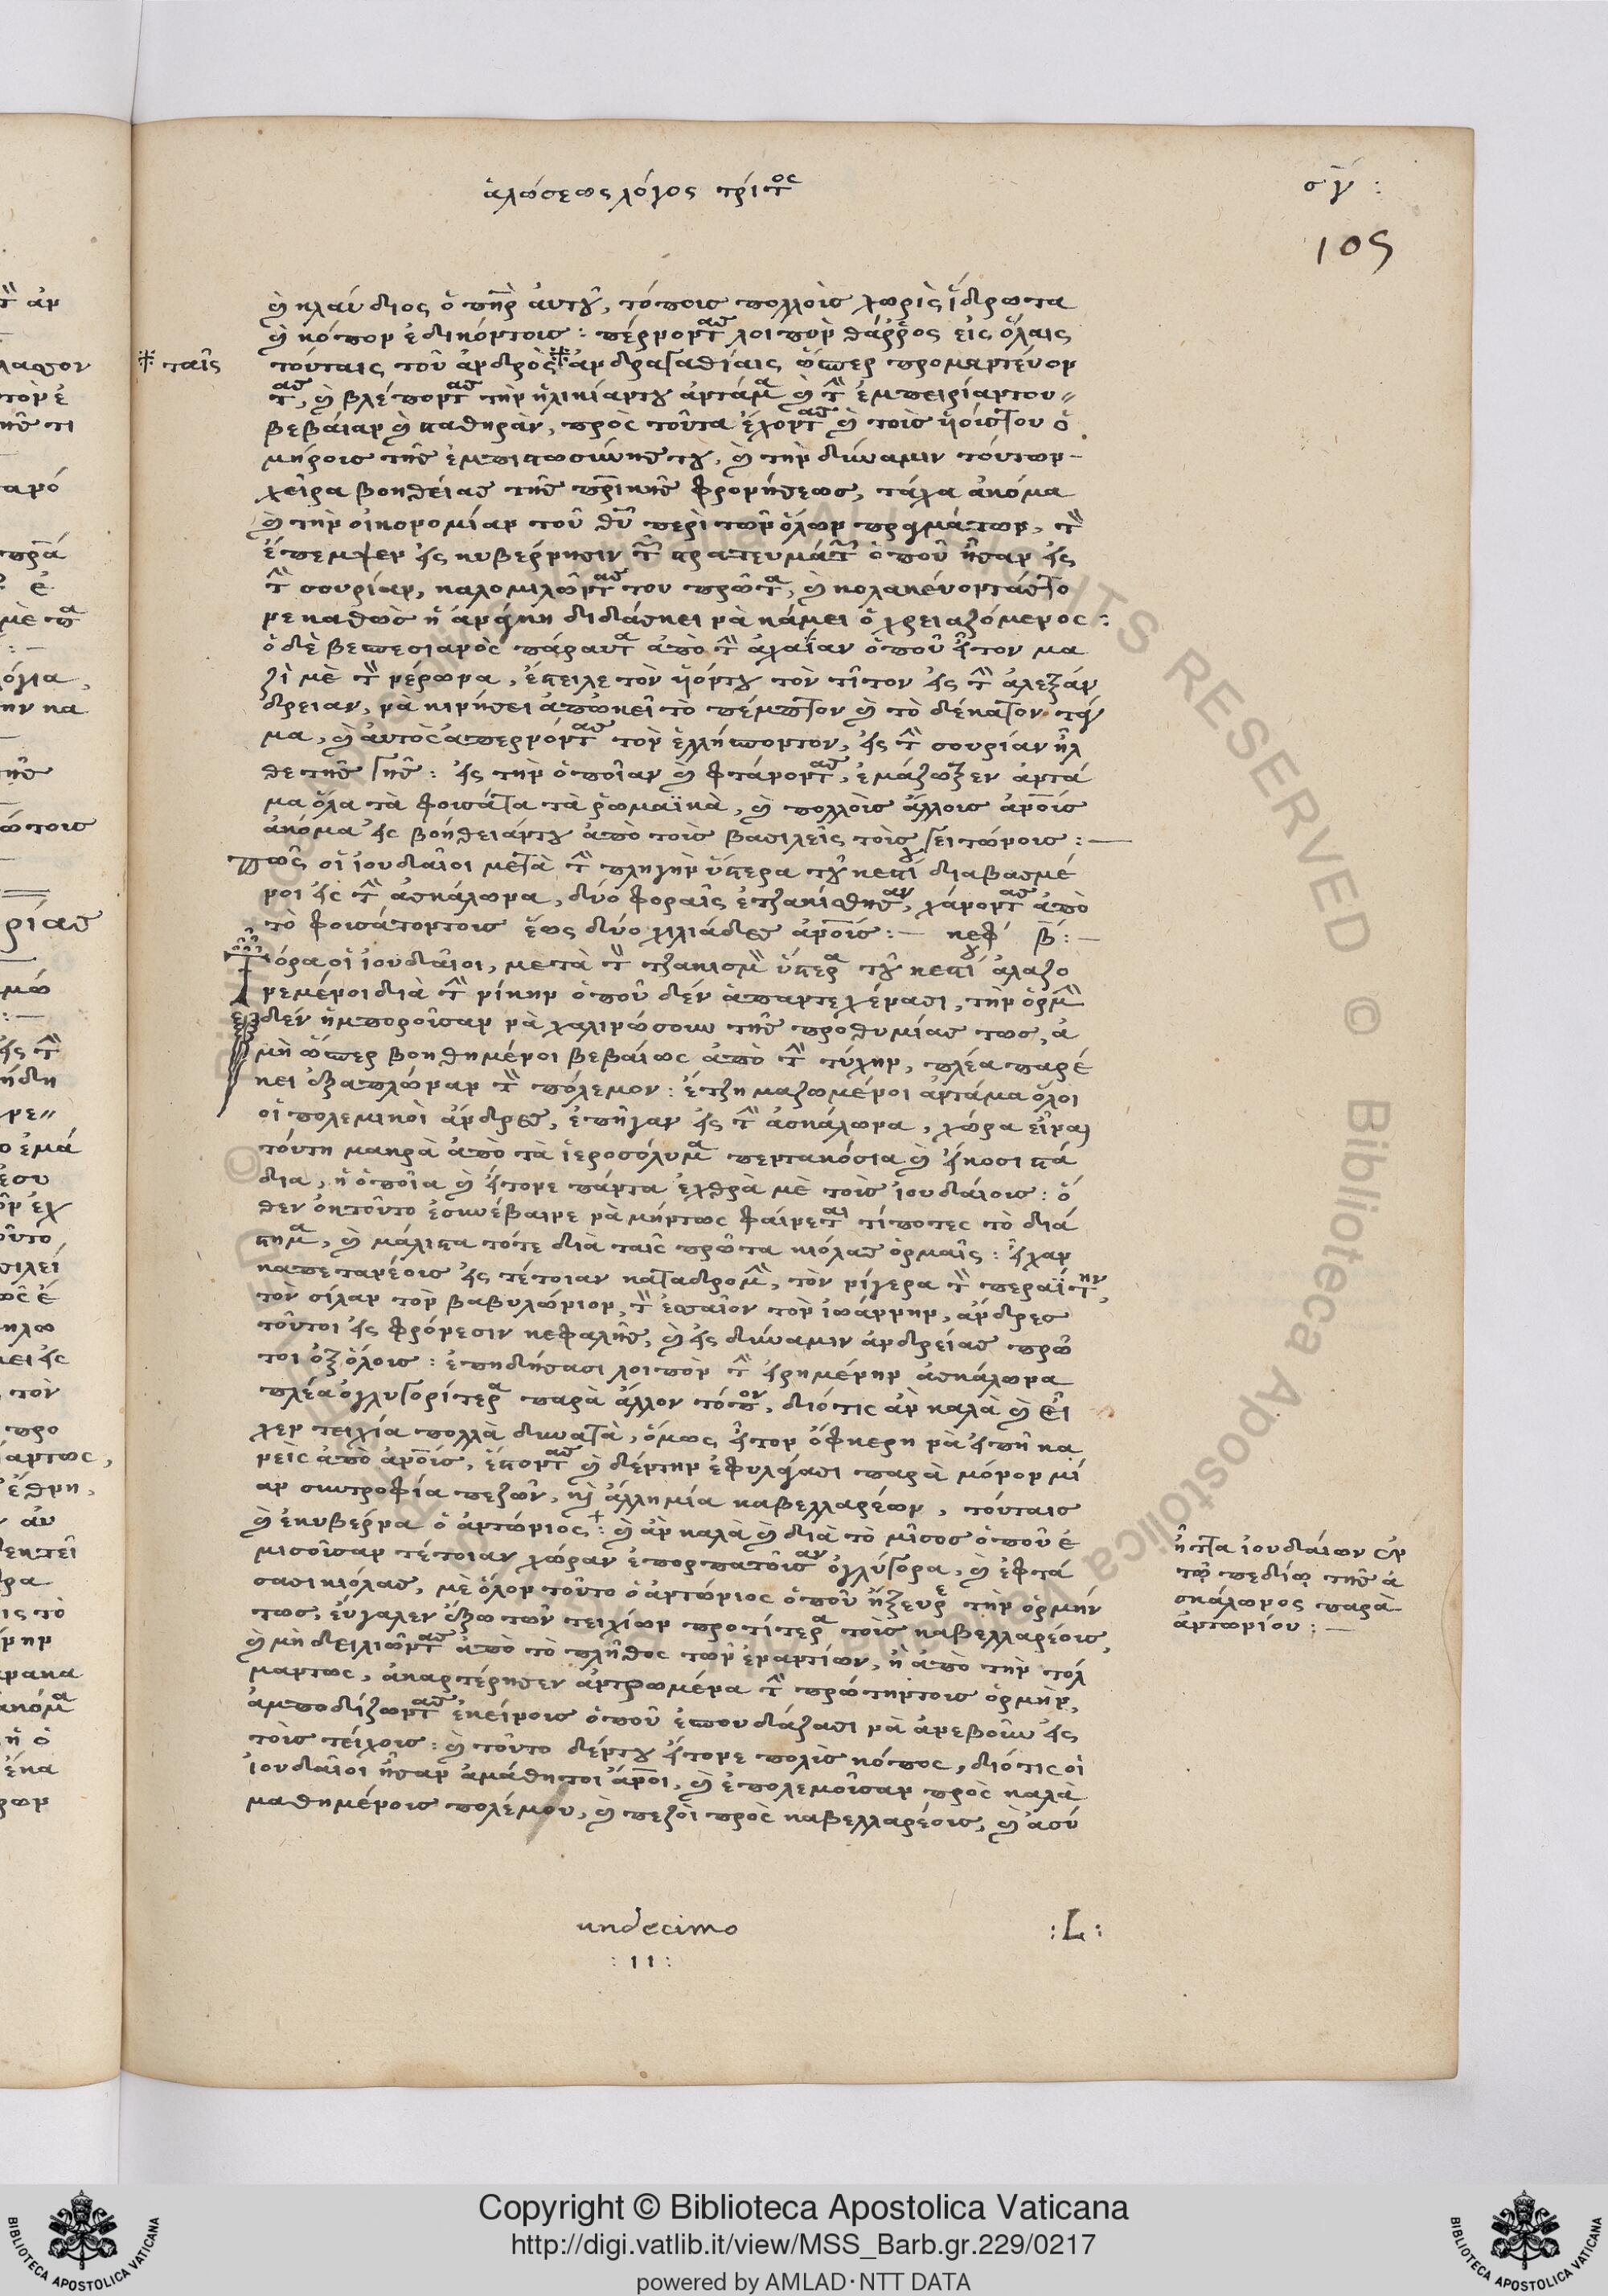 ἁλώσεως λόγος τρίτος
σγ :
105
ὁ κλαύδιος ὁ πηρ ἀυτȣ, τόποις πολλοὶς χωρὶς ἵδρωτα
κόπον ἐδικόντοις : πέρνοντας λοιπὸν θάρρος εἰς ὅλαις
ταῖς
τούταις τοῦ ἀνδρὸς ἀνδραγαθίαις ὥσπερ προμαντέυον
τας, καὶ βλέποντας τὴν ἡλικίαντȣ ἀντάμα καὶ τὴν ἐμπειρίαντου
βεβάιαν καὶ σταθηρὰν, πρὸς τοῦτα ἔχοντας καὶ τοὶς ὑιούστου ὁ
μήροις τῆς ἐμπιστωσύνης τȣ, καὶ τὴν δύναμιν τούτων
χεῖρα βοηθείας τῆς πρικῆς φρονήσεως, τάχα ἀκόμα
καὶ τὴν οἰκονομίαν τοῦ θῦ περὶ τῶν ὅλων πραγμάτων, τὸν
ἔπεμψεν εἰς κυβέρνησιν τῶν στρατευμάτων ὁποῦ ἦσαν εἰς
τὴν συρίαν, καλομιλῶντας του πρῶτα, καὶ κολακέυοντάςτο
νε καθὼς ἡ ἀνάγκη διδάσκει νὰ κάμει ὁ χρειαζόμενος :
ὁ δὲ βεσπεσιανὸς πάραυτα ἀπὸ τὴν ἀχαΐαν ὁποῦ ἦτον μα
ζὶ μὲ τὸν νέρωνα, ἔστειλε τὸν ὑιόντȣ τὸν τίτον εἰς τὴν ἀλεξάν
δρειαν, νὰ κινήσει ἀπῶκεῖ τὸ πέμπτον καὶ τὸ δέκατον τάγ
μα, καὶ ἀυτὸς ἀπερνόντας τὸν ἑλλήσποντον, εἰς τὴν συρίαν ἦλ
θε τῆς γῆς : εἰς τὴν ὁποῖαν καὶ φτάνοντας, ἐμάζωξεν ἀντά
μα ὅλα τὰ φοισάτα τὰ ῥωμαϊκὰ, καὶ πολλοὶς ἄλλοις ἀνοὶς
ἀκόμα εἰς βοήθειάντȣ ἀπὸ τοὶς βασιλεῖς τοὶς γειτώνοις : —
πῶς οἱ ἰουδαῖοι μετὰ τὴν πληγὴν ὕστερα τοῦ κεστίου διαβασμέ
νοι εἰς τὴν ἀσκάλωνα, δύο φοραῖς ἐτζακίσθησαν, χάνοντας ἀπὸ
τὸ φοισάτοντοις ἕως δύο χιλιάδες ἀνοὶς : — κεφ β : —
Τώρα οἱ ἰουδαῖοι, μετὰ τὸν τζακισμὸν ὕστερα τοῦ κεστίου ἀλαζο
νεμένοι διὰ τὴν νίκην ὁποῦ δὲν ἀπαντεχένασι, τὴν ὁρμὴν
δὲν ἠμποροῦσαν νὰ χαλινώσουν τῆς προθυμίας τως, ἀ
μὴ ὥσπερ βοηθημένοι βεβάιως ἀπὸ τὴν τύχην, πλέα παρέ
κει ἐξαπλώναν τὸν πόλεμον : ἔτζη μαζωμένοι ἀντάμα ὅλοι
οἱ πολεμικοὶ ἄνδρες, ἐπῆγαν εἰς τὴν ἀσκάλωνα, χώρα εἶναι
τούτη μακρὰ ἀπὸ τὰ ἱεροσόλυμα πεντακόσια καὶ εἴκοσι στά
δια, ἡ ὁποῖα καὶ ἤτονε πάντα ἐχθρὰ μὲ τοὶς ἰουδάιοις : ὅ
θεν ὀκτοῦτο ἐσυνέβαινε νὰ μήντως φάινεται τίποτες τὸ διά
στημα, καὶ μάλιστα τότε διὰ ταῖς πρῶτα κιόλας ὁρμαῖς : εἶχαν
καπετανέοις εἰς τέτοιαν καταδρομὴν, τὸν νίγερα τὸν περαΐτην,
τὸν σίλαν τὸν βαβυλώνιον, τὸν ἐσαῖον τὸν ἰωάννην, ἄνδρες
τοῦτοι εἰς φρόνεσιν κεφαλῆς, καὶ εἰς δύναμιν ἀνδρείας πρῶ
τοι ὀξ ὅλοις : ἐπηδήσασι λοιπὸν τὴν εἰρημένην ἀσκάλωνα
πλέα ὀγλυγορίτερα παρὰ ἄλλον τόπον, διότις ἂν καλὰ καὶ εἶ
χεν τειχία πολλὰ δυνατὰ, ὅμως ἦτον ὄφκερη νὰ εἰπῆ κα
νεὶς ἀπὸ ἀνοὶς, ἔστοντας καὶ δέντην ἐφυλάγασι παρὰ μόνον μί
αν συντροφία πεζῶν, καὶ ἄλλη μία καβελλαρέων, τούταις
καὶ ἐκυβέρνα ὁ ἀντώνιος : καὶ ἂν καλὰ καὶ διὰ τὸ μῖσος ὁποῦ ἐ
μισοῦσαν τέτοιαν χώραν ἐπορπατοῦσαν ὀγλύγορα, καὶ ἐφτά
σασι κιόλας, μὲ ὅλον τοῦτο ὁ ἀντώνιος ὁποῦ ἤξευρε τὴν ὁρμήν
τως, ἔυγαλεν ἔξω τῶν τειχίων προτίτερα τοὶς καβελλαρέοις,
καὶ μὴ δειλιῶντας ἀπὸ τὸ πλῆθος τῶν ἐναντίων, ἢ ἀπὸ τὴν τόλ
μαντως, ἀκαρτέρησεν ἀντρωμένα τὴν πρώτηντοις ὁρμὴν,
ἀμποδίζωντας ἐκείνοις ὁποῦ ἐσπουδάζασι νὰ ἀνεβοῦν εἰς
τοὶς τείχοις : καὶ τοῦτο δέντȣ ἤτονε πολὺς κόπος, διότις οἱ
ἰουδαῖοι ἦσαν ἀμάθητοι ἄνοι, καὶ ἐπολεμοῦσαν πρὸς καλὰ
μαθημένοις πολέμου, καὶ πεζοὶ πρὸς καβελλαρέοις, καὶ ἀσύ
ἧττα ἰουδάιων ἐν
τῷ πεδίῳ τῆς ἀ
σκάλωνος παρὰ
ἀντωνίου : —
undecimo
: 11 :
: L :
Copyright © Biblioteca Apostolica Vaticana
http://digi.vatlib.it/view/MSS_Barb.gr.229/0217
powered by AMLAD·NTT DATA